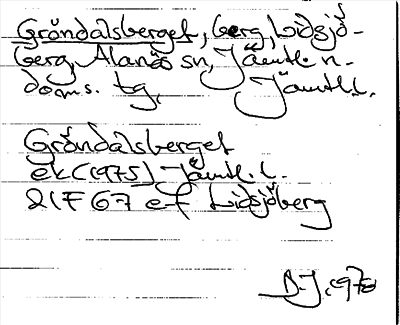 Gröndalsberget, berg, Lidsjö-
berg, Alanäs sn, Jämtl. n.
doms. tg, Jämtl.l.
Gröndalsberget
ek (1975) Jämtl. l.
21F 67 e-f Lidsjöberg
B.J. 1978